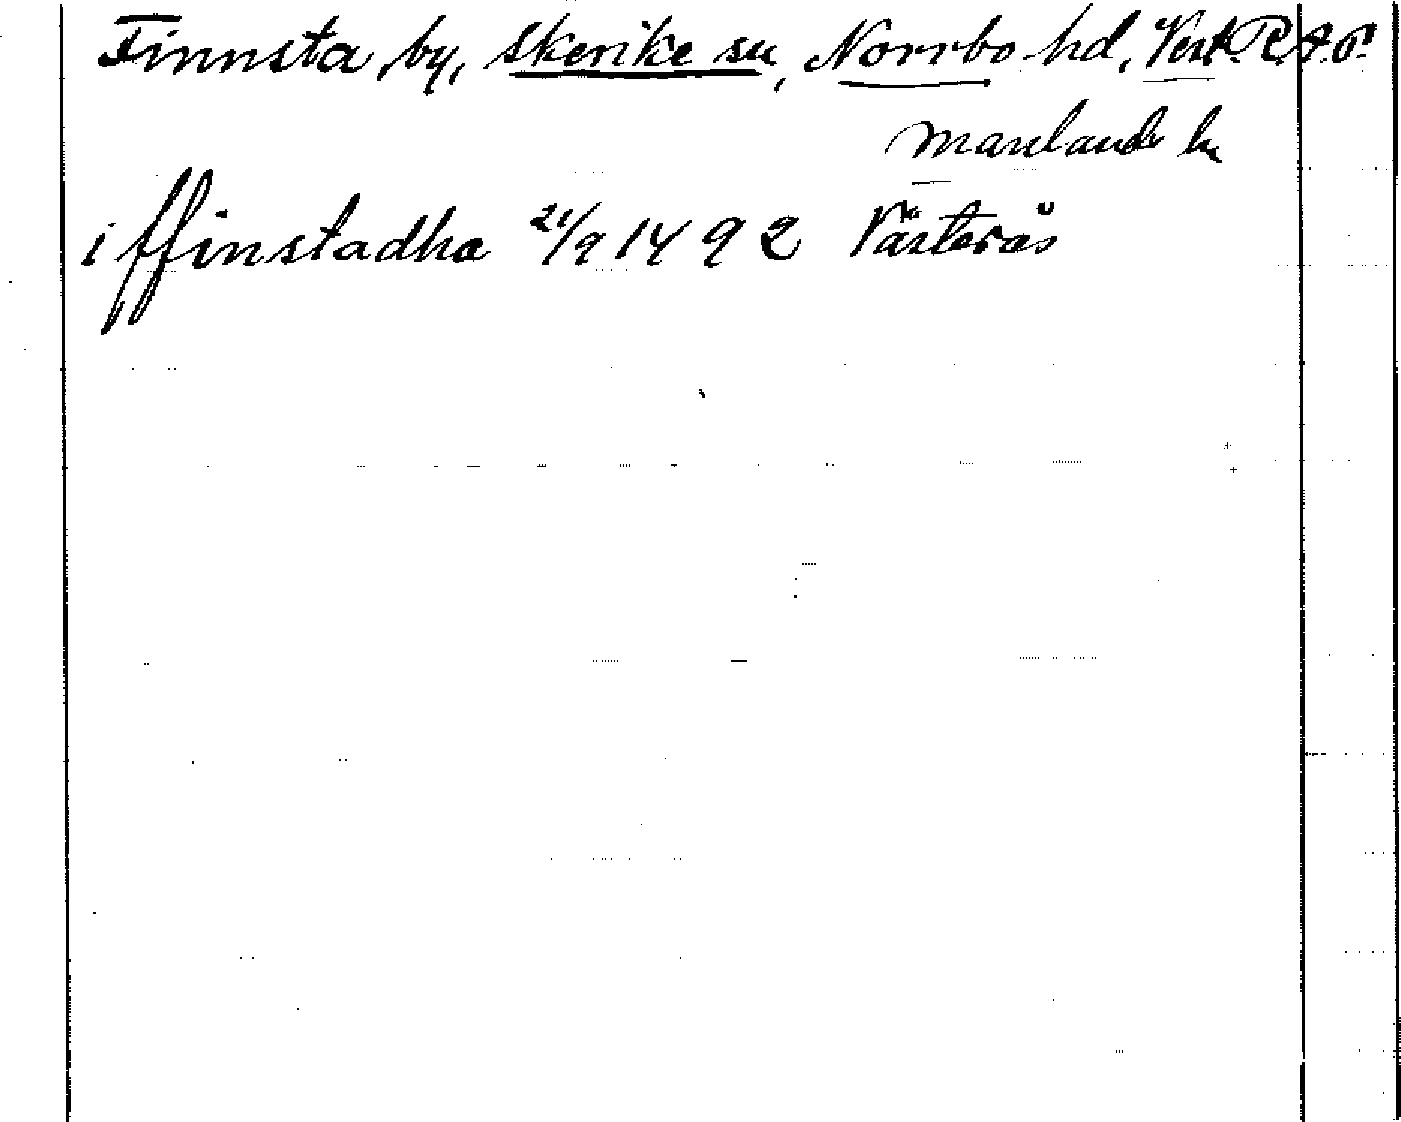 Finnsta, by, Skerike sn, Norrbo hd, Vestm. R.A.P.
manlands ln
i ffinstadha 21/9 1492 Västerås